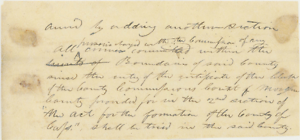 amend by adding another section
All crimes committed within the
limits of Boundaries of said County
since the entry of the certificate of the
of the County Commissioners Court of
County provided for in the 2nd section of
"the act for the formation of the County of
Cass" shall be tried in the said County